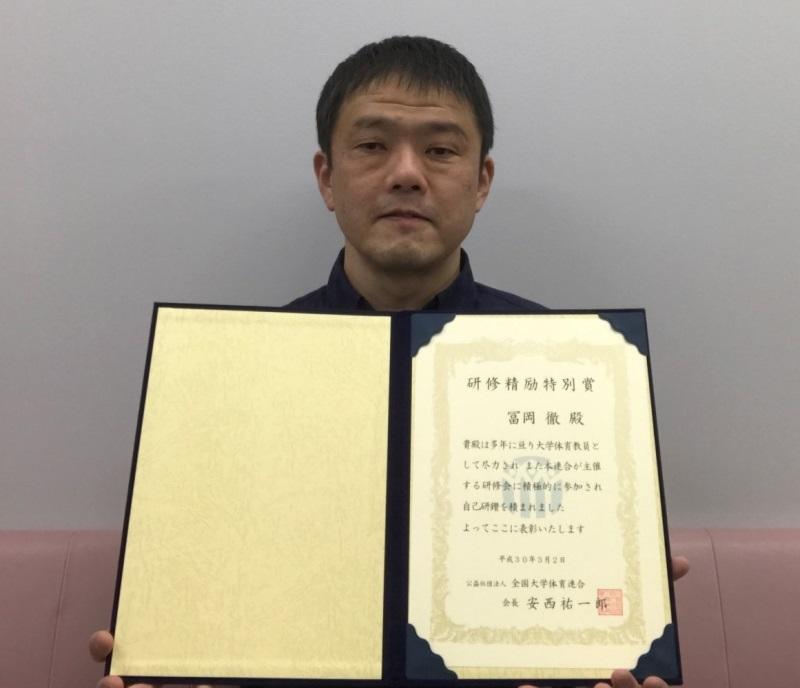 研修精励特別賞
冨岡 徹 殿
貴殿は多年に亘り大学体育教員と
して尽力され また本連合が主催
する研修会に積極的に参加され
自己研鑽を積まれました
よってここに表彰いたします
平成30年3月2日
公益社団法人 全国大学体育連合
会長 安西祐一郎